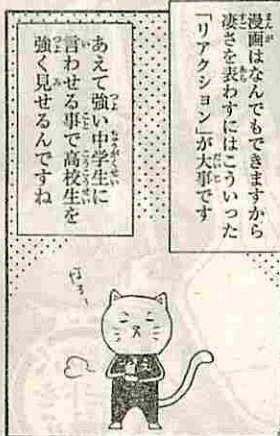 漫画はなんでもできますから
凄さを表わすにはこういった
「リアクション」が大事です
あえて強い中学生に
言わせる事で高校生を
強く見せるんですね
ほろ〜